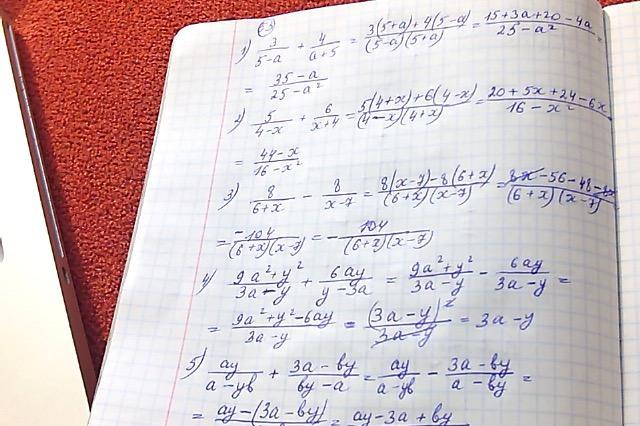 1) 3/(5-a) + 4/(a+5) = (3(5+a)+4(5-a))/((5-a)(5+a)) = (15+3a+20-4a)/(25-a²) =
= (35-a)/(25-a²)
2) 5/(4-x) + 6/(x+4) = (5(4+x)+6(4-x))/((4-x)(4+x)) = (20+5x+24-6x)/(16-x²)
= (44-x)/(16-x²)
3) 8/(6+x) - 8/(x-7) = (8(x-7)-8(6+x))/((6+x)(x-7)) = (8x-56-48-8x)/((6+x)(x-7))
= -104/((6+x)(x-7)) = - 104/((6+x)(x-7))
4) (9a²+y²)/(3a-y) + 6ay/(y-3a) = (9a²+y²)/(3a-y) - 6ay/(3a-y) =
= (9a²+y²-6ay)/(3a-y) = (3a-y)²/(3a-y) = 3a-y
5) ay/(a-yb) + (3a-by)/(by-a) = ay/(a-yb) - (3a-by)/(a-by) =
= ay-(3a-by) = ay-3a+by